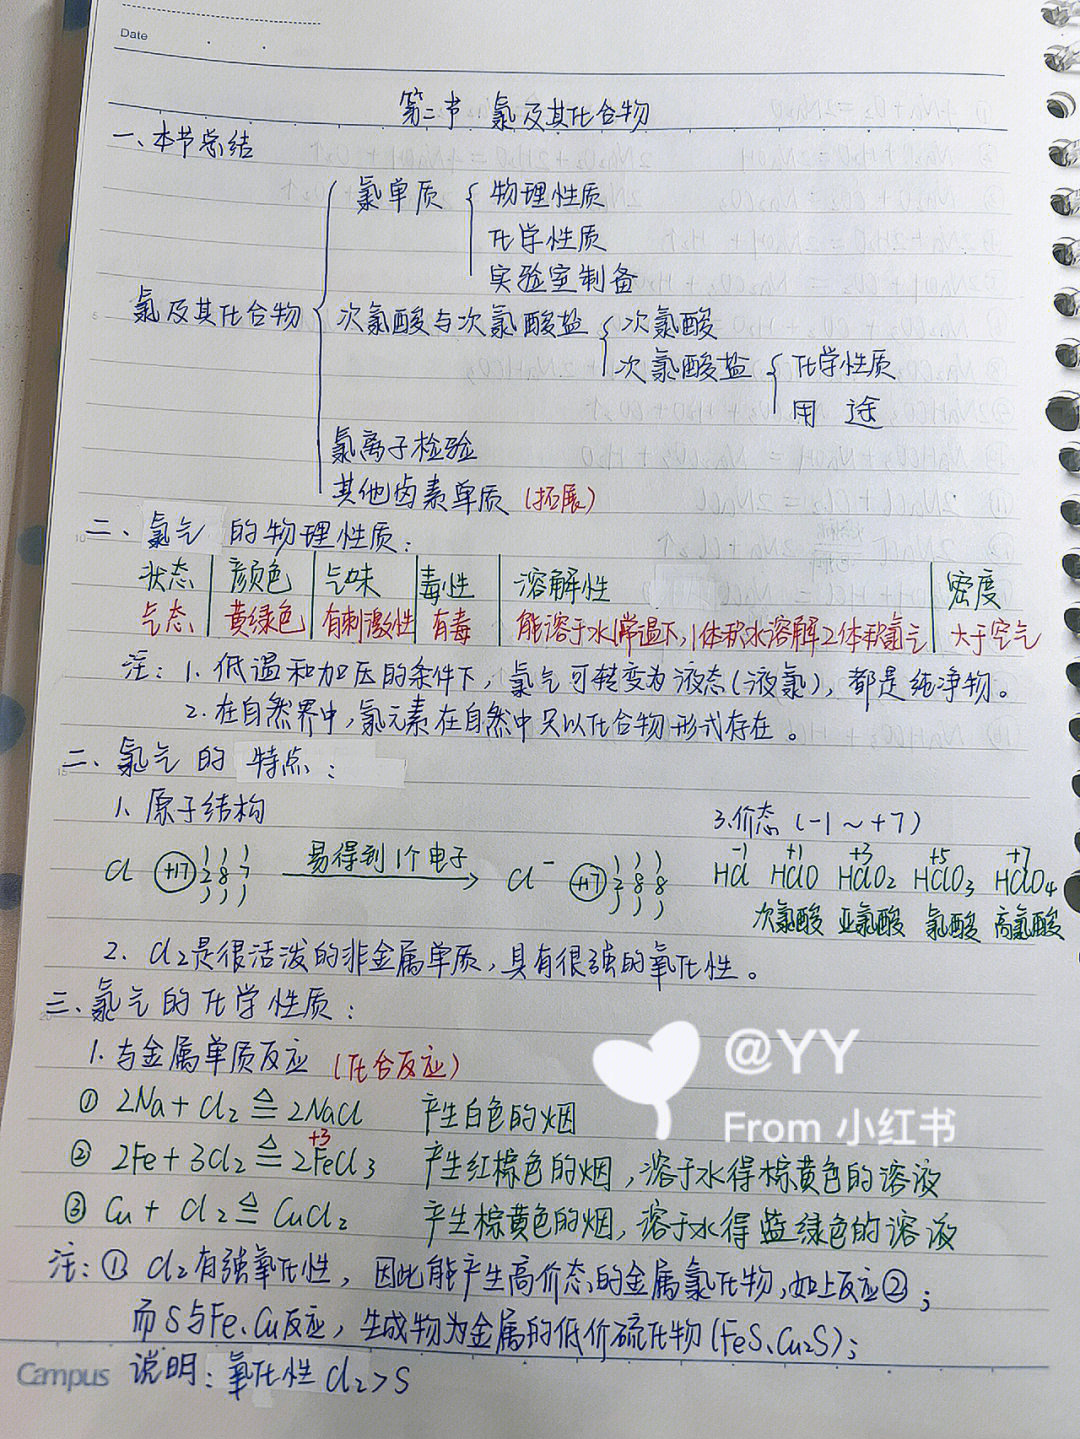 Date
第二节 氯及其化合物
一、本节总结
氯单质 { 物理性质
化学性质
实验室制备
氯及其化合物 { 次氯酸与次氯酸盐 { 次氯酸
次氯酸盐 { 化学性质
用途
氯离子检验
其他卤素单质 (拓展)
二、氯气的物理性质:
状态 颜色 气味 毒性 溶解性 密度
气态 黄绿色 有刺激性 有毒 能溶于水(常温下,1体积水溶解2体积氯气 大于空气
注: 1. 低温和加压的条件下, 氯气可转变为液态(液氯), 都是纯净物。
2. 在自然界中, 氯元素在自然中只以化合物形式存在。
二、氯气的特点:
1. 原子结构
3.价态 (-1~+7)
Cl (+17) 2 8 7 易得到1个电子 → Cl⁻ (+17) 2 8 8
-1 +1 +3 +5 +7
HCl HClO HClO₂ HClO₃ HClO₄
次氯酸 亚氯酸 氯酸 高氯酸
2. Cl₂是很活泼的非金属单质, 具有很强的氧化性。
三、氯气的化学性质:
1. 与金属单质反应 (化合反应)
① 2Na + Cl₂ ≜ 2NaCl 产生白色的烟
+3
② 2Fe + 3Cl₂ ≜ 2FeCl₃ 产生红棕色的烟, 溶于水得棕黄色的溶液
③ Cu + Cl₂ ≜ CuCl₂ 产生棕黄色的烟, 溶于水得蓝绿色的溶液
注: ① Cl₂有强氧化性, 因此能产生高价态的金属氯化物, 如上反应②;
而S与Fe、Cu反应, 生成物为金属的低价硫化物(FeS、Cu₂S);
说明: 氧化性 Cl₂>S
Campus
@YY
From 小红书